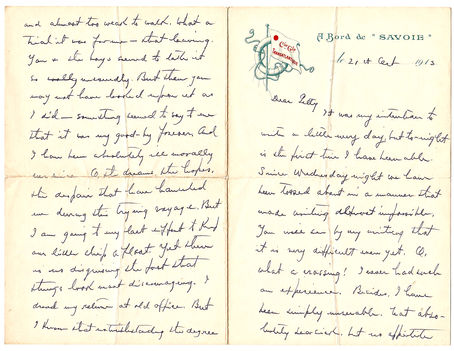 A Bord de "SAVOIE"
Cie Gle
TRANSATLANTIQUE
21st Oct 191
Dear
It was my intention to
write a letter every day, but to-night
is the first time I have been able.
Since Wednesday night we have
been tossed about in a manner that
made writing almost impossible.
You will see by my writing that
it is very difficult even yet. O,
what a crossing! I never had such
an experience. Besides, I have
been simply miserable. Not abso-
lutely seasick, but no appetite
and almost too weak to walk. What a
trial it was for me - that leaving.
You & the boys seemed to take it
so But then you
may not have looked upon it as
I did - something seemed to say to me
that it was my good-by forever. And
I have been absolutely ill morally
ever since. O, the dreams, the hopes,
the despair that have haunted
me during the trying voyage. But
I am going to my last effort to keep
our little ship afloat. Yet there
is no disguising the fact that
things look most discouraging. I
dread my return at old office. But
I know that notwithstanding the degree